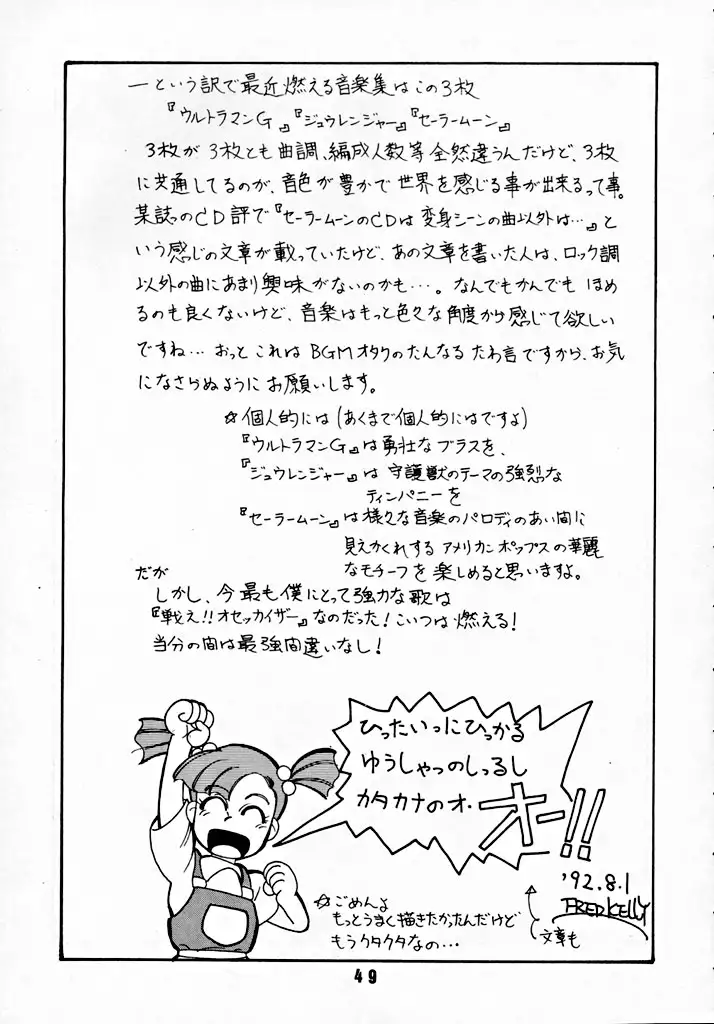 ―という訳で最近燃える音楽集はこの3枚
『ウルトラマンG』『ジュウレンジャー』『セーラームーン』
3枚が3枚とも曲調、編成人数等全然違うんだけど、3枚
に共通してるのが、音色が豊かで世界を感じる事が出来るって事。
某誌のCD評で『セーラームーンのCDは変身シーンの曲以外は…』と
いう感じの文章が載っていたけど、あの文章を書いた人は、ロック調
以外の曲にあまり興味がないのかも…。なんでもかんでもほめ
るのも良くないけど、音楽はもっと色々な角度から感じて欲しい
ですね…おっとこれはBGMオタクのたんなるたわ言ですから、お気
になさらぬようにお願いします。
☆個人的には(あくまで個人的にはですよ)
『ウルトラマンG』は勇壮なブラスを、
『ジュウレンジャー』は守護獣のテーマの強烈な
ティンパニーを
『セーラームーン』は様々な音楽のパロディのあい間に
見えかくれするアメリカンポップスの華麗
なモチーフを楽しめると思いますよ。
だが
しかし、今最も僕にとって強力な歌は
『戦え!!オセッカイザー』なのだった!こいつは燃える!
当分の間は最強間違いなし!
ひったいっにひっかる
ゆうしゃっのしっるし
カタカナのオ・
オー!!
'92.8.1
FRED KELLY
文章も
☆ごめんよ
もっとうまく描きたかったんだけど
もうクタクタなの…
49